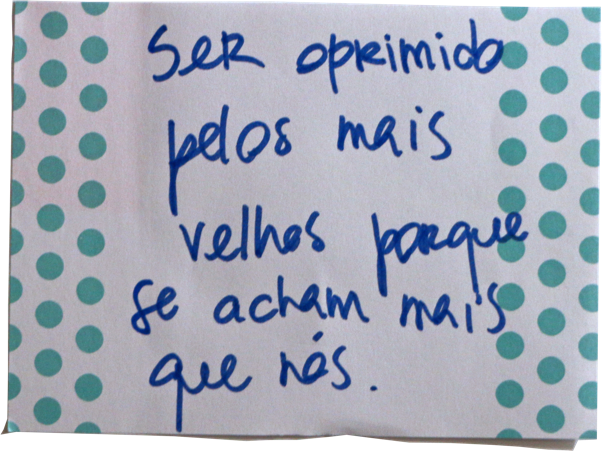 Ser oprimido
pelos mais
velhos porque
se acham mais
que nós.